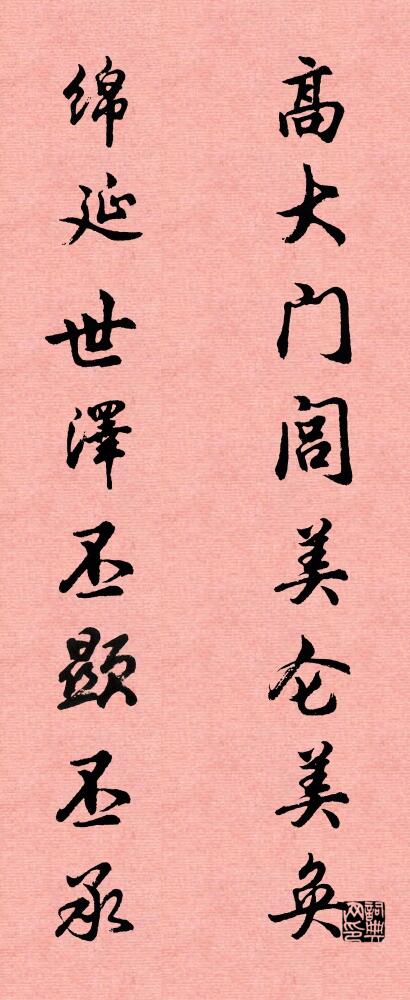 高大门闾美仑美奂
绵延世澤丕顯丕承
詞典网印